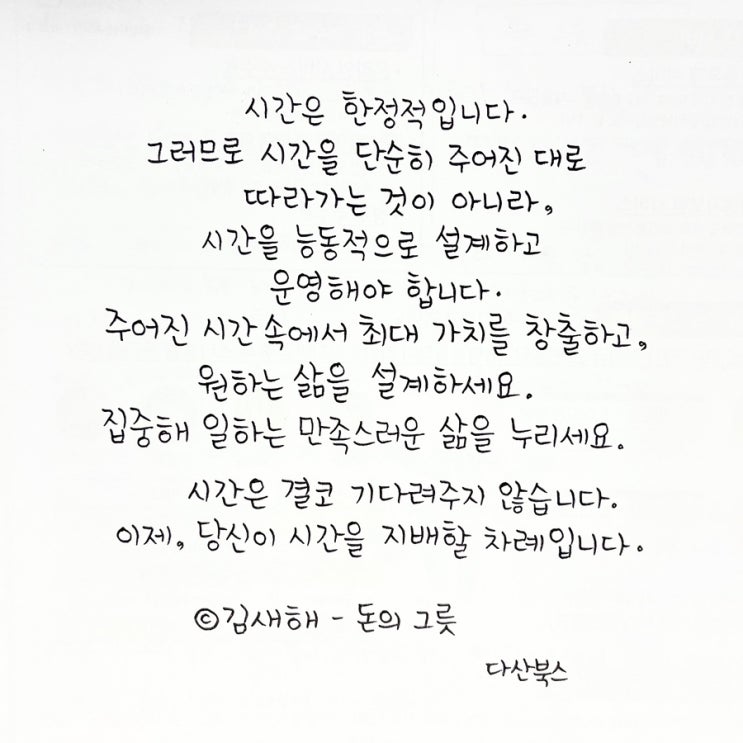 시간은 한정적입니다.
그러므로 시간을 단순히 주어진 대로
따라가는 것이 아니라,
시간을 능동적으로 설계하고
운영해야 합니다.
주어진 시간 속에서 최대 가치를 창출하고,
원하는 삶을 설계하세요.
집중해 일하는 만족스러운 삶을 누리세요.
시간은 결코 기다려주지 않습니다.
이제, 당신이 시간을 지배할 차례입니다.
©김새해 - 돈의 그릇
다산북스